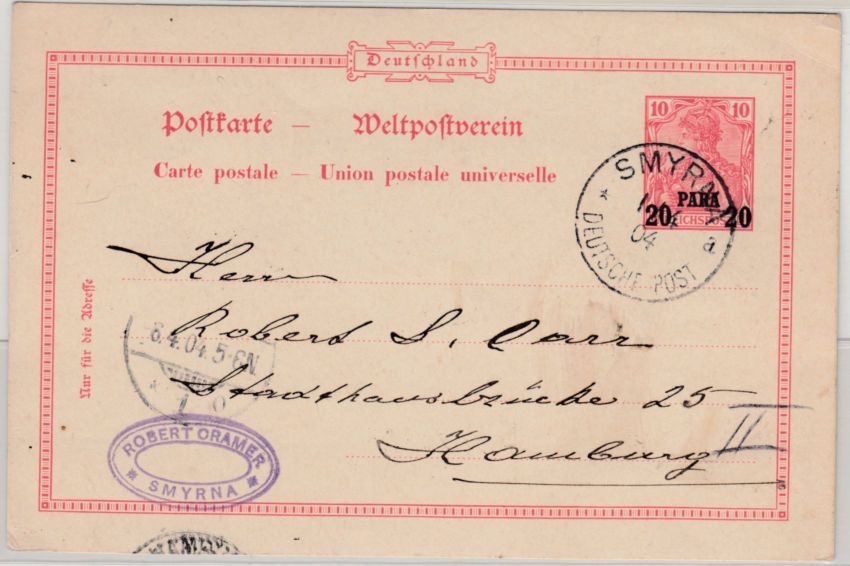 Deutschland
Postkarte — Weltpostverein
Carte postale — Union postale universelle
10 10
20 PARA 20
REICHSPOST
SMYRNA
1 4
04
a
DEUTSCHE POST
Nur für die Adresse
Herrn
Robert S. Carr
Stadthausbrücke 25
Hamburg
II
8.4.04.5-6N
1 o
ROBERT CRAMER
SMYRNA